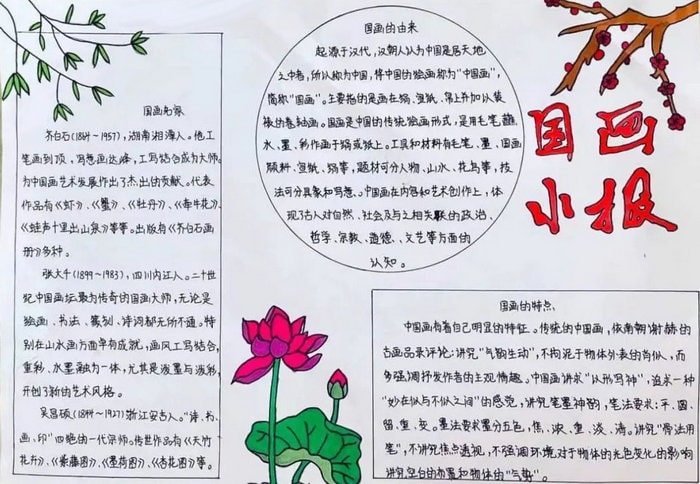 国画小报
国画的由来
起源于汉代,汉朝人认为中国是居天地
之中者,所以称为中国,将中国的绘画称为“中国画”,
简称“国画”。主要指的是画在绢、宣纸、帛上并加以装
裱的卷轴画。国画是中国的传统绘画形式,是用毛笔蘸
水、墨、彩作画于绢或纸上。工具和材料有毛笔、墨、国画
颜料、宣纸、绢等,题材可分人物、山水、花鸟等,技
法可分具象和写意。中国画在内容和艺术创作上,体
现了古人对自然、社会及与之相关联的政治、
哲学、宗教、道德、、文艺等方面的
认知。
国画名家
齐白石(1864~1957),湖南湘潭人。他工
笔画到顶,写意画达峰,工写结合成为大师。
为中国画艺术发展作出了杰出的贡献。代表
作品有《虾》、《蟹》、《牡丹》、《牵牛花》、
《蛙声十里出山泉》等等。出版有《齐白石画
册》多种。
张大千(1899~1983),四川内江人。二十世
纪中国画坛最为传奇的国画大师,无论是
绘画、书法、篆刻、诗词都无所不通。特
别在山水画方面卓有成就,画风工写结合,
重彩、水墨融为一体,尤其是泼墨与泼彩,
开创了新的艺术风格。
吴昌硕(1844~1927)浙江安吉人。“诗、书、
画、印”四绝的一代宗师。传世作品有《天竹
花卉》、《紫藤图》、《墨荷图》、《杏花图》等。
国画的特点
中国画有着自己明显的特征。传统的中国画,依南朝谢赫的
古画品录评论:讲究“气韵生动”,不拘泥于物体外表的肖似,而
多强调抒发作者的主观情趣。中国画讲求“以形写神”,追求一种
“妙在似与不似之间”的感觉,讲究笔墨神韵,笔法要求:平、圆、
留、重、变。墨法要求墨分五色,焦、浓、重、淡、清。讲究“骨法用
笔”,不讲究焦点透视,不强调环境对于物体的光色变化的影响
讲究空白的布置和物体的“气势”。